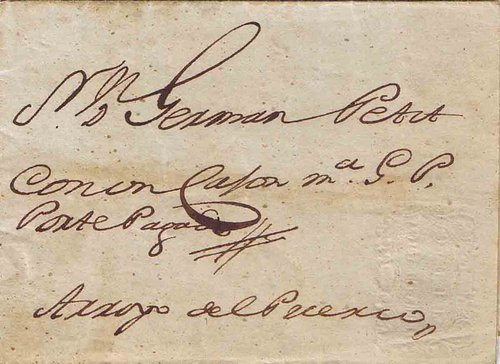 Sr. Dn German Petit
Con un Cajon ma. G. P.
Porte Pagado
Arroyo del Puerco,